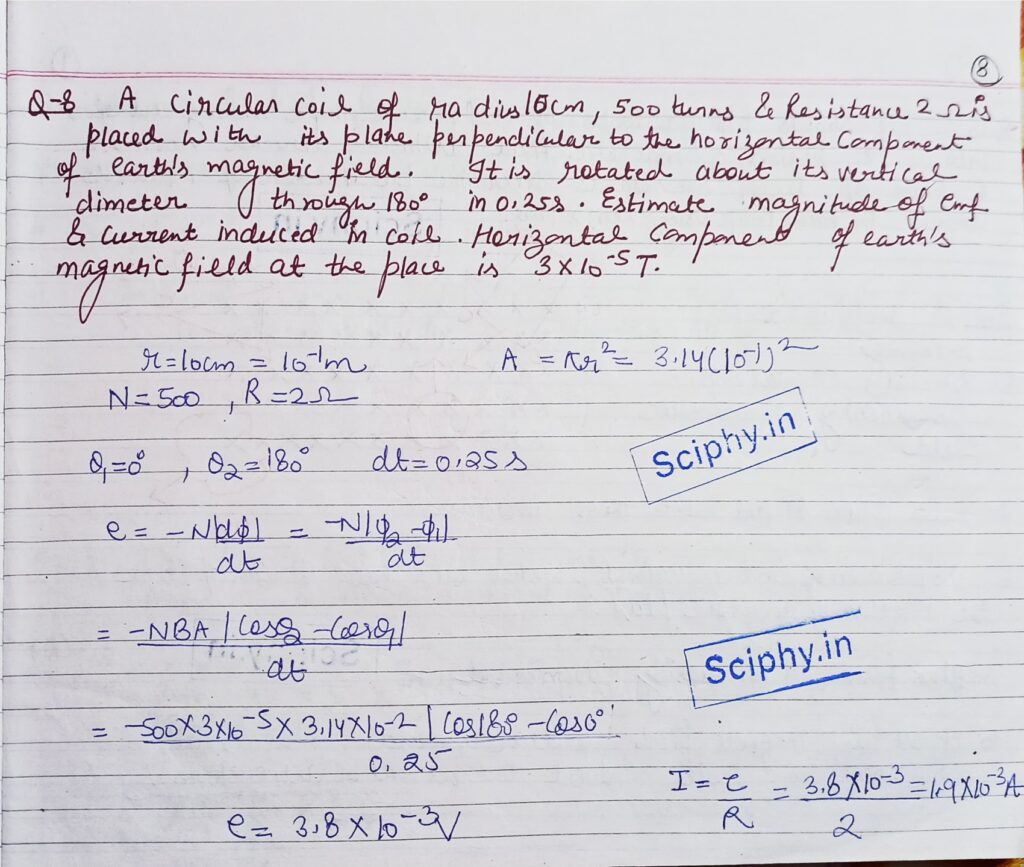 8
Q-8 A circular coil of radius 10cm, 500 turns & Resistance 2 Ω is
placed with its plane perpendicular to the horizontal Component
of earth's magnetic field. It is rotated about its vertical
dimeter through 180° in 0.25s. Estimate magnitude of emf
& current induced in coil. Horizontal Component of earth's
magnetic field at the place is 3×10⁻⁵ T.
r=10cm = 10⁻¹m A = πr² = 3.14(10⁻¹)²
N=500 , R=2Ω
Sciphy.in
θ₁=0° , θ₂=180° dt=0.25s
e = -N|dϕ|/dt = -N|ϕ₂-ϕ₁|/dt
= -NBA |Cosθ₂ - Cosθ₁|/dt
Sciphy.in
= -500×3×10⁻⁵×3.14×10⁻² |Cos180 - Cos0°/0.25
e = 3.8×10⁻³V
I = e/R = 3.8×10⁻³/2 = 1.9×10⁻³A